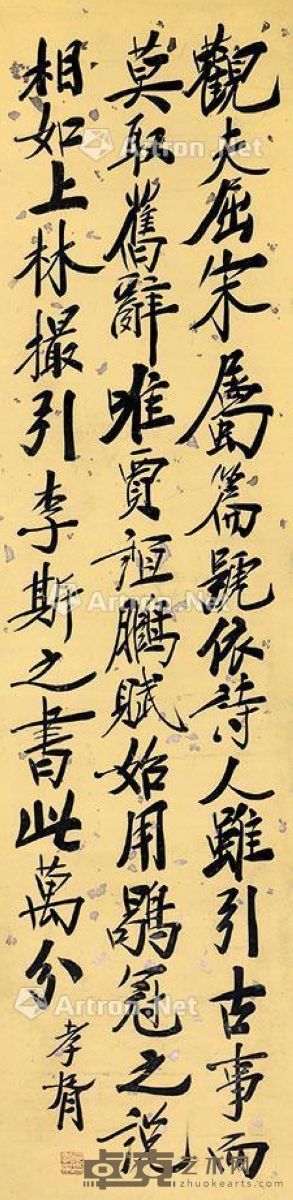 觀夫屈宋屬篇號依詩人雖引古事而
莫取舊辭唯賈誼鵩賦始用鶡冠之說
相如上林撮引李斯之書此萬分
孝胥
Artron.Net
卓克艺术网
www.zhuokearts.com